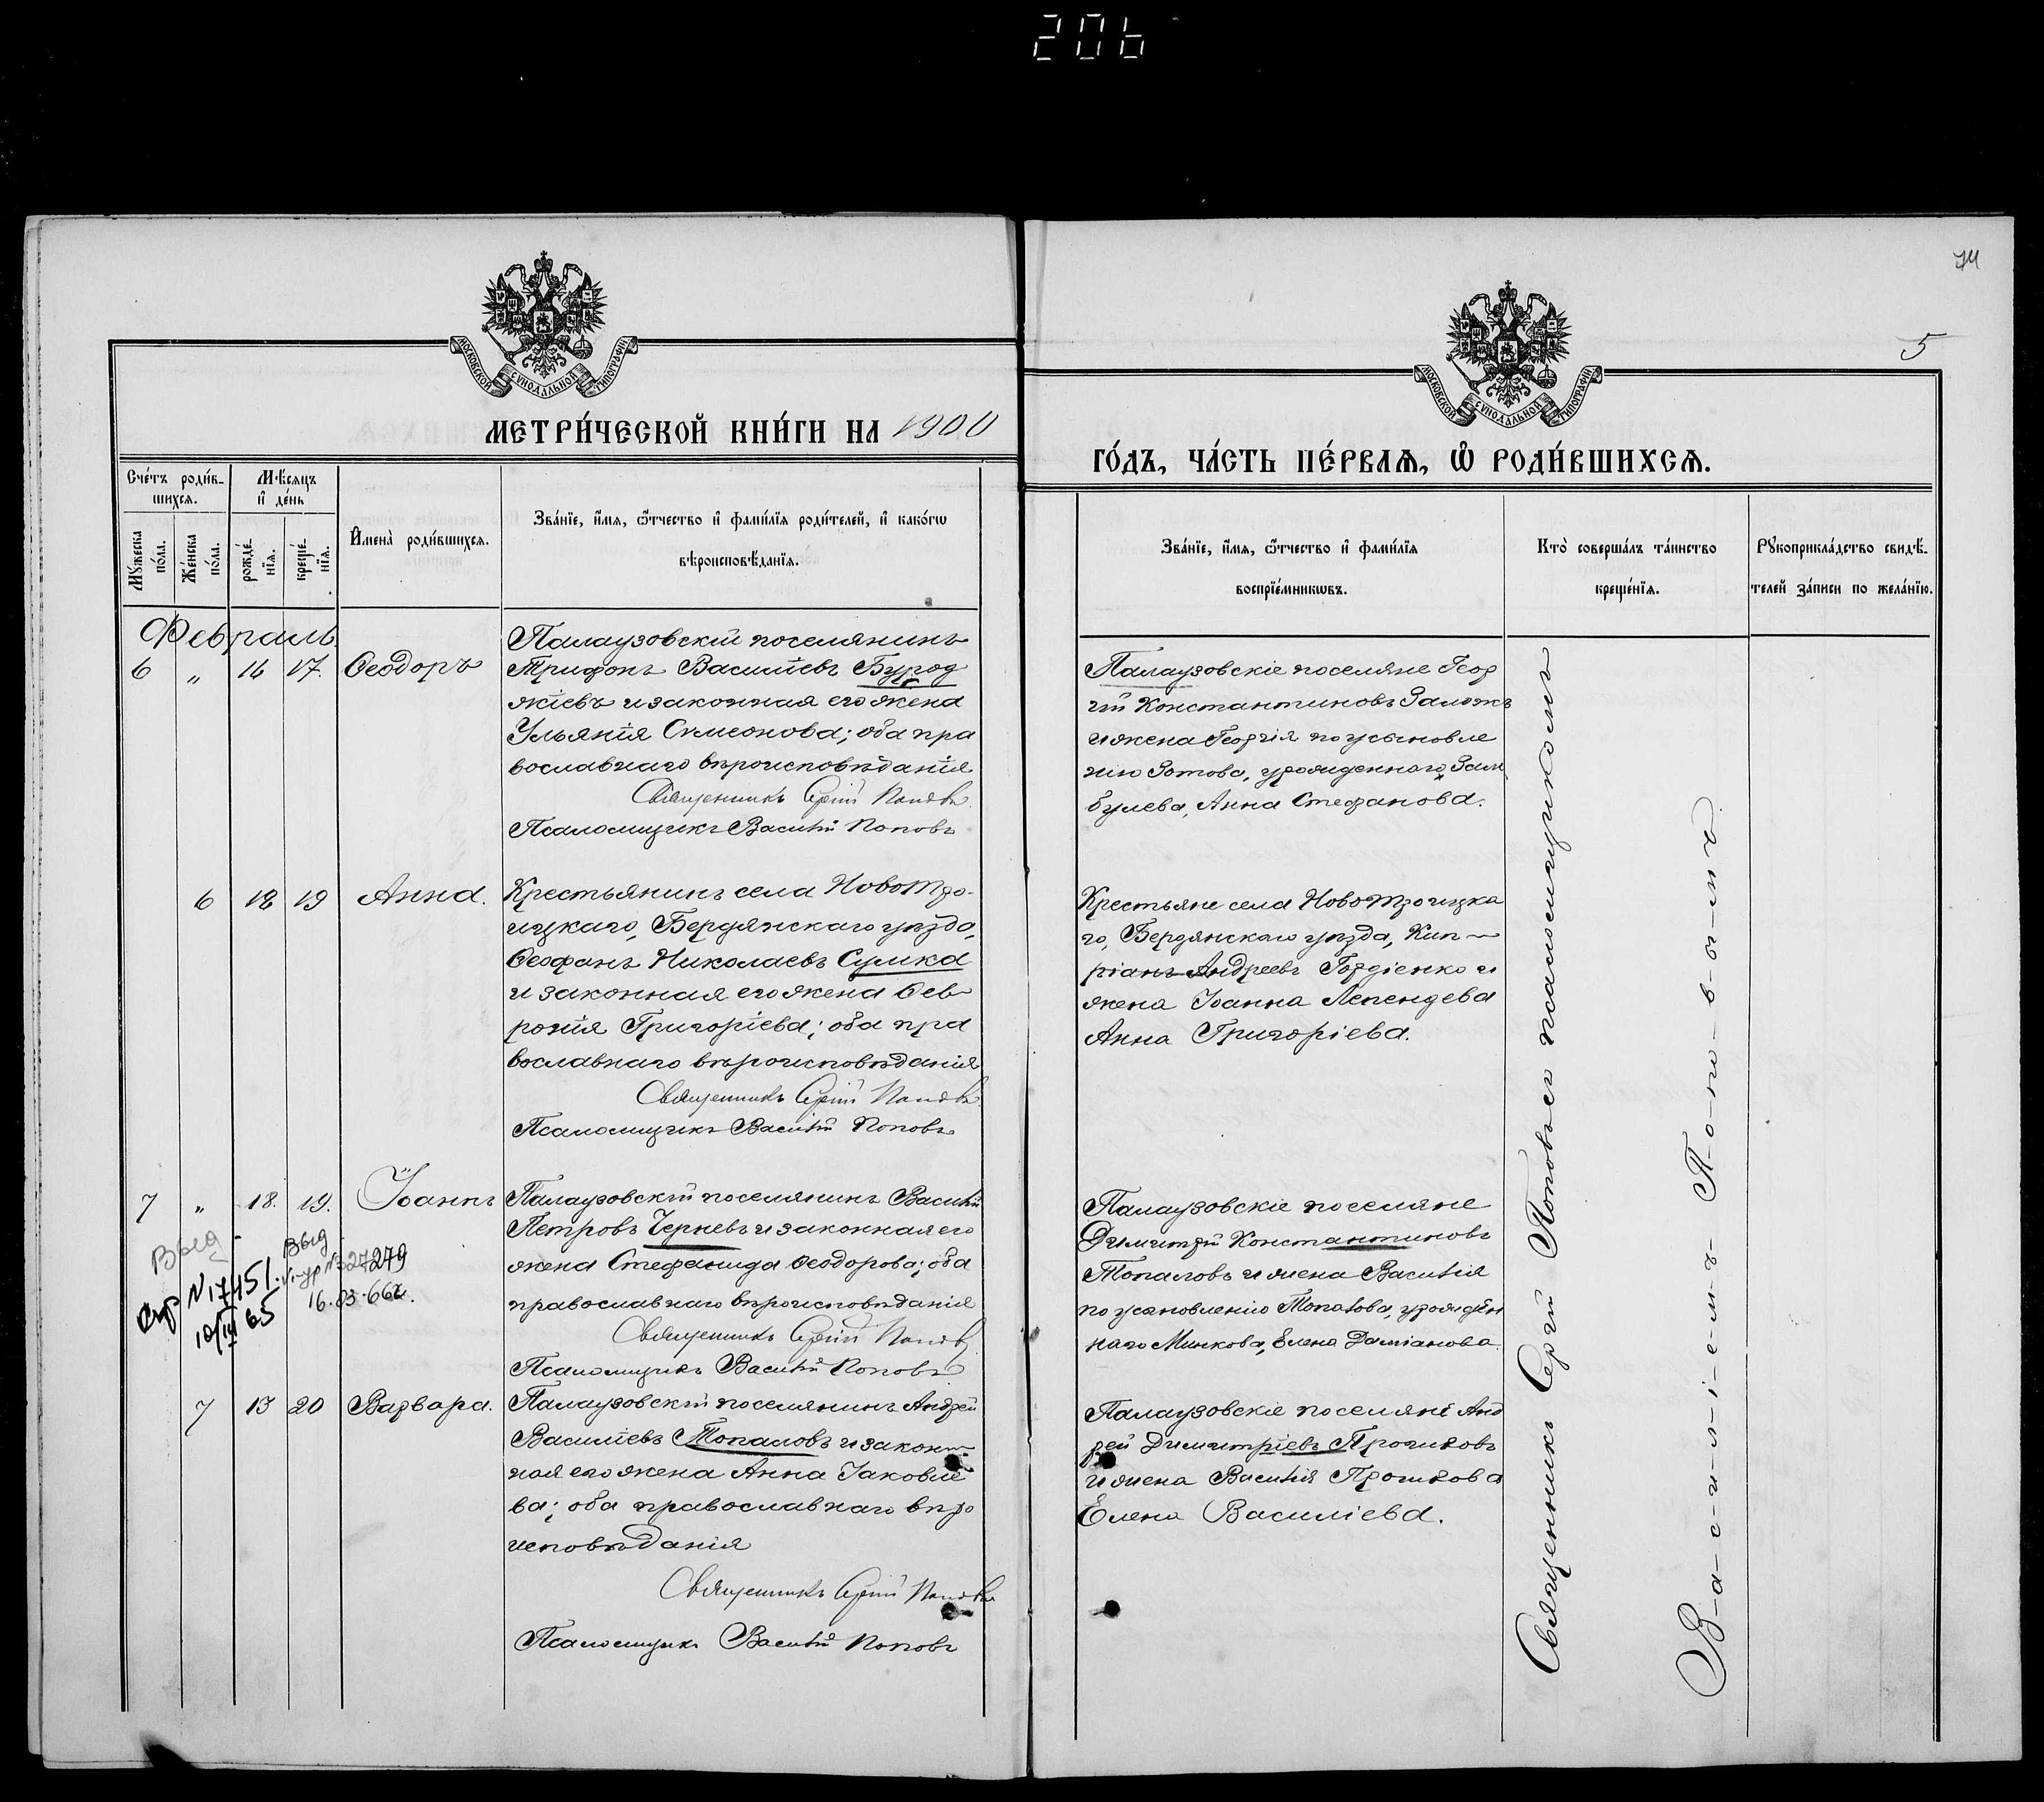 206
74
5
МОСКОВСКОЙ СѴНОДАЛЬНОЙ ТИПОГРАФІИ
МОСКОВСКОЙ СѴНОДАЛЬНОЙ ТИПОГРАФІИ
МЕТРИ́ЧЕСКОЙ КНИ́ГИ НА 1900
ГО́ДЪ, ЧА́СТЬ ПЕ́РВАѦ, Ѡ РОДИ́ВШИХСѦ.
Сче́тъ роди́в-
шихсѧ.
Мѣ́сяцъ
и҆ де́нь
Мꙋ́жеска
по́ла.
Же́нска
по́ла.
рожде́-
нїѧ.
креще́-
нїѧ.
И҆мена̀ роди́вшихсѧ.
Зва́нїе, и҆́мѧ, ѻ҆́тчество и҆ фами́лїѧ роди́телей, и҆ како́гѡ
вѣроисповѣ́данїѧ.
Зва́нїе, и҆́мѧ, ѻ҆́тчество и҆ фами́лїѧ
воспрїе́мникѡвъ.
Кто̀ соверша́лъ та́инство
креще́нїѧ.
Рꙋкоприкла́дство свидѣ́-
телей за́писи по жела́нїю.
Февраль
6 " 16 17. Ѳеодоръ
Палаузовскій поселянинъ
Трифонъ Василіевъ Бурод
жіевъ и законная его жена
Ульянія Симеонова; оба пра
вославнаго вѣроисповѣданія
Священникъ Сергій Поповъ.
Псаломщикъ Василій Поповъ
Палаузовскіе поселяне Геор
гій Константиновъ
и жена Георгія по усыновле
нію Зотова, урожденнаго Зам
булева, Анна Стефанова.
6 18 19 Анна.
Крестьянинъ села Новотро-
ицкаго, Бердянскаго уѣзда,
Ѳеофанъ Николаевъ Сулика
и законная его жена Ѳев-
ронія Григоріева; оба пра
вославнаго вѣроисповѣданія
Священникъ Сергій Поповъ
Псаломщикъ Василій Поповъ
Крестьяне села Новотроицка
го, Бердянскаго уѣзда, Кип-
ріанъ Андреевъ Гордіенко и
жена Іоанна Лепендева
Анна Григоріева.
7 " 18. 19. Іоаннъ
Палаузовскій поселянинъ Василій
Петровъ Черневъ и законная его
жена Стефанида Ѳеодорова; оба
православнаго вѣроисповѣданія
Священникъ Сергій Поповъ
Псаломщикъ Василій Поповъ
Выд
N17451.
10/IV 65
Выд
27279
16.03.66г.
Палаузовскіе поселяне
Димитрій Константиновъ
Топаловъ и жена Василія
по усыновленію Топалова, урожден
наго Минкова, Елена Даміанова.
7 13 20 Варвара.
Палаузовскій поселянинъ Андрей
Василіевъ Топаловъ и закон-
ная его жена Анна Іаковле
ва; оба православнаго вѣро
исповѣданія
Священникъ Сергій Поповъ
Псаломщикъ Василій Поповъ
Палаузовскіе поселяне Анд
рей Димитріевъ Пройковъ
и жена Василія Пройкова
Елена Василіева.
Священникъ Сергій Поповъ съ псаломщикомъ
В-а-с-и-л-і-е-м-ъ П-о-п-о-в-ы-м-ъ